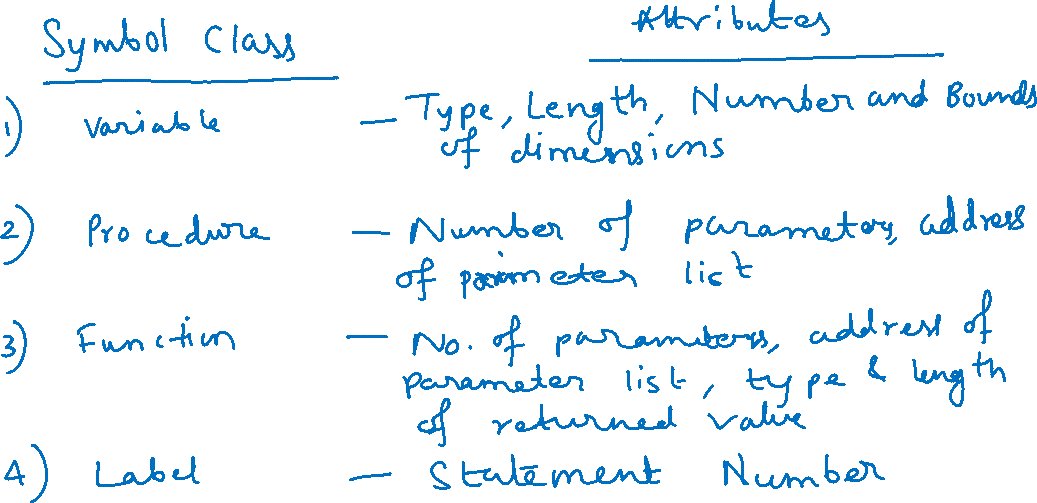 Symbol Class Attributes
1) Variable - Type, Length, Number and Bounds
of dimensions
2) Procedure - Number of parameters, address
of parameter list
3) Function - No. of parameters, address of
parameter list, type & length
of returned value
4) Label - Statement Number